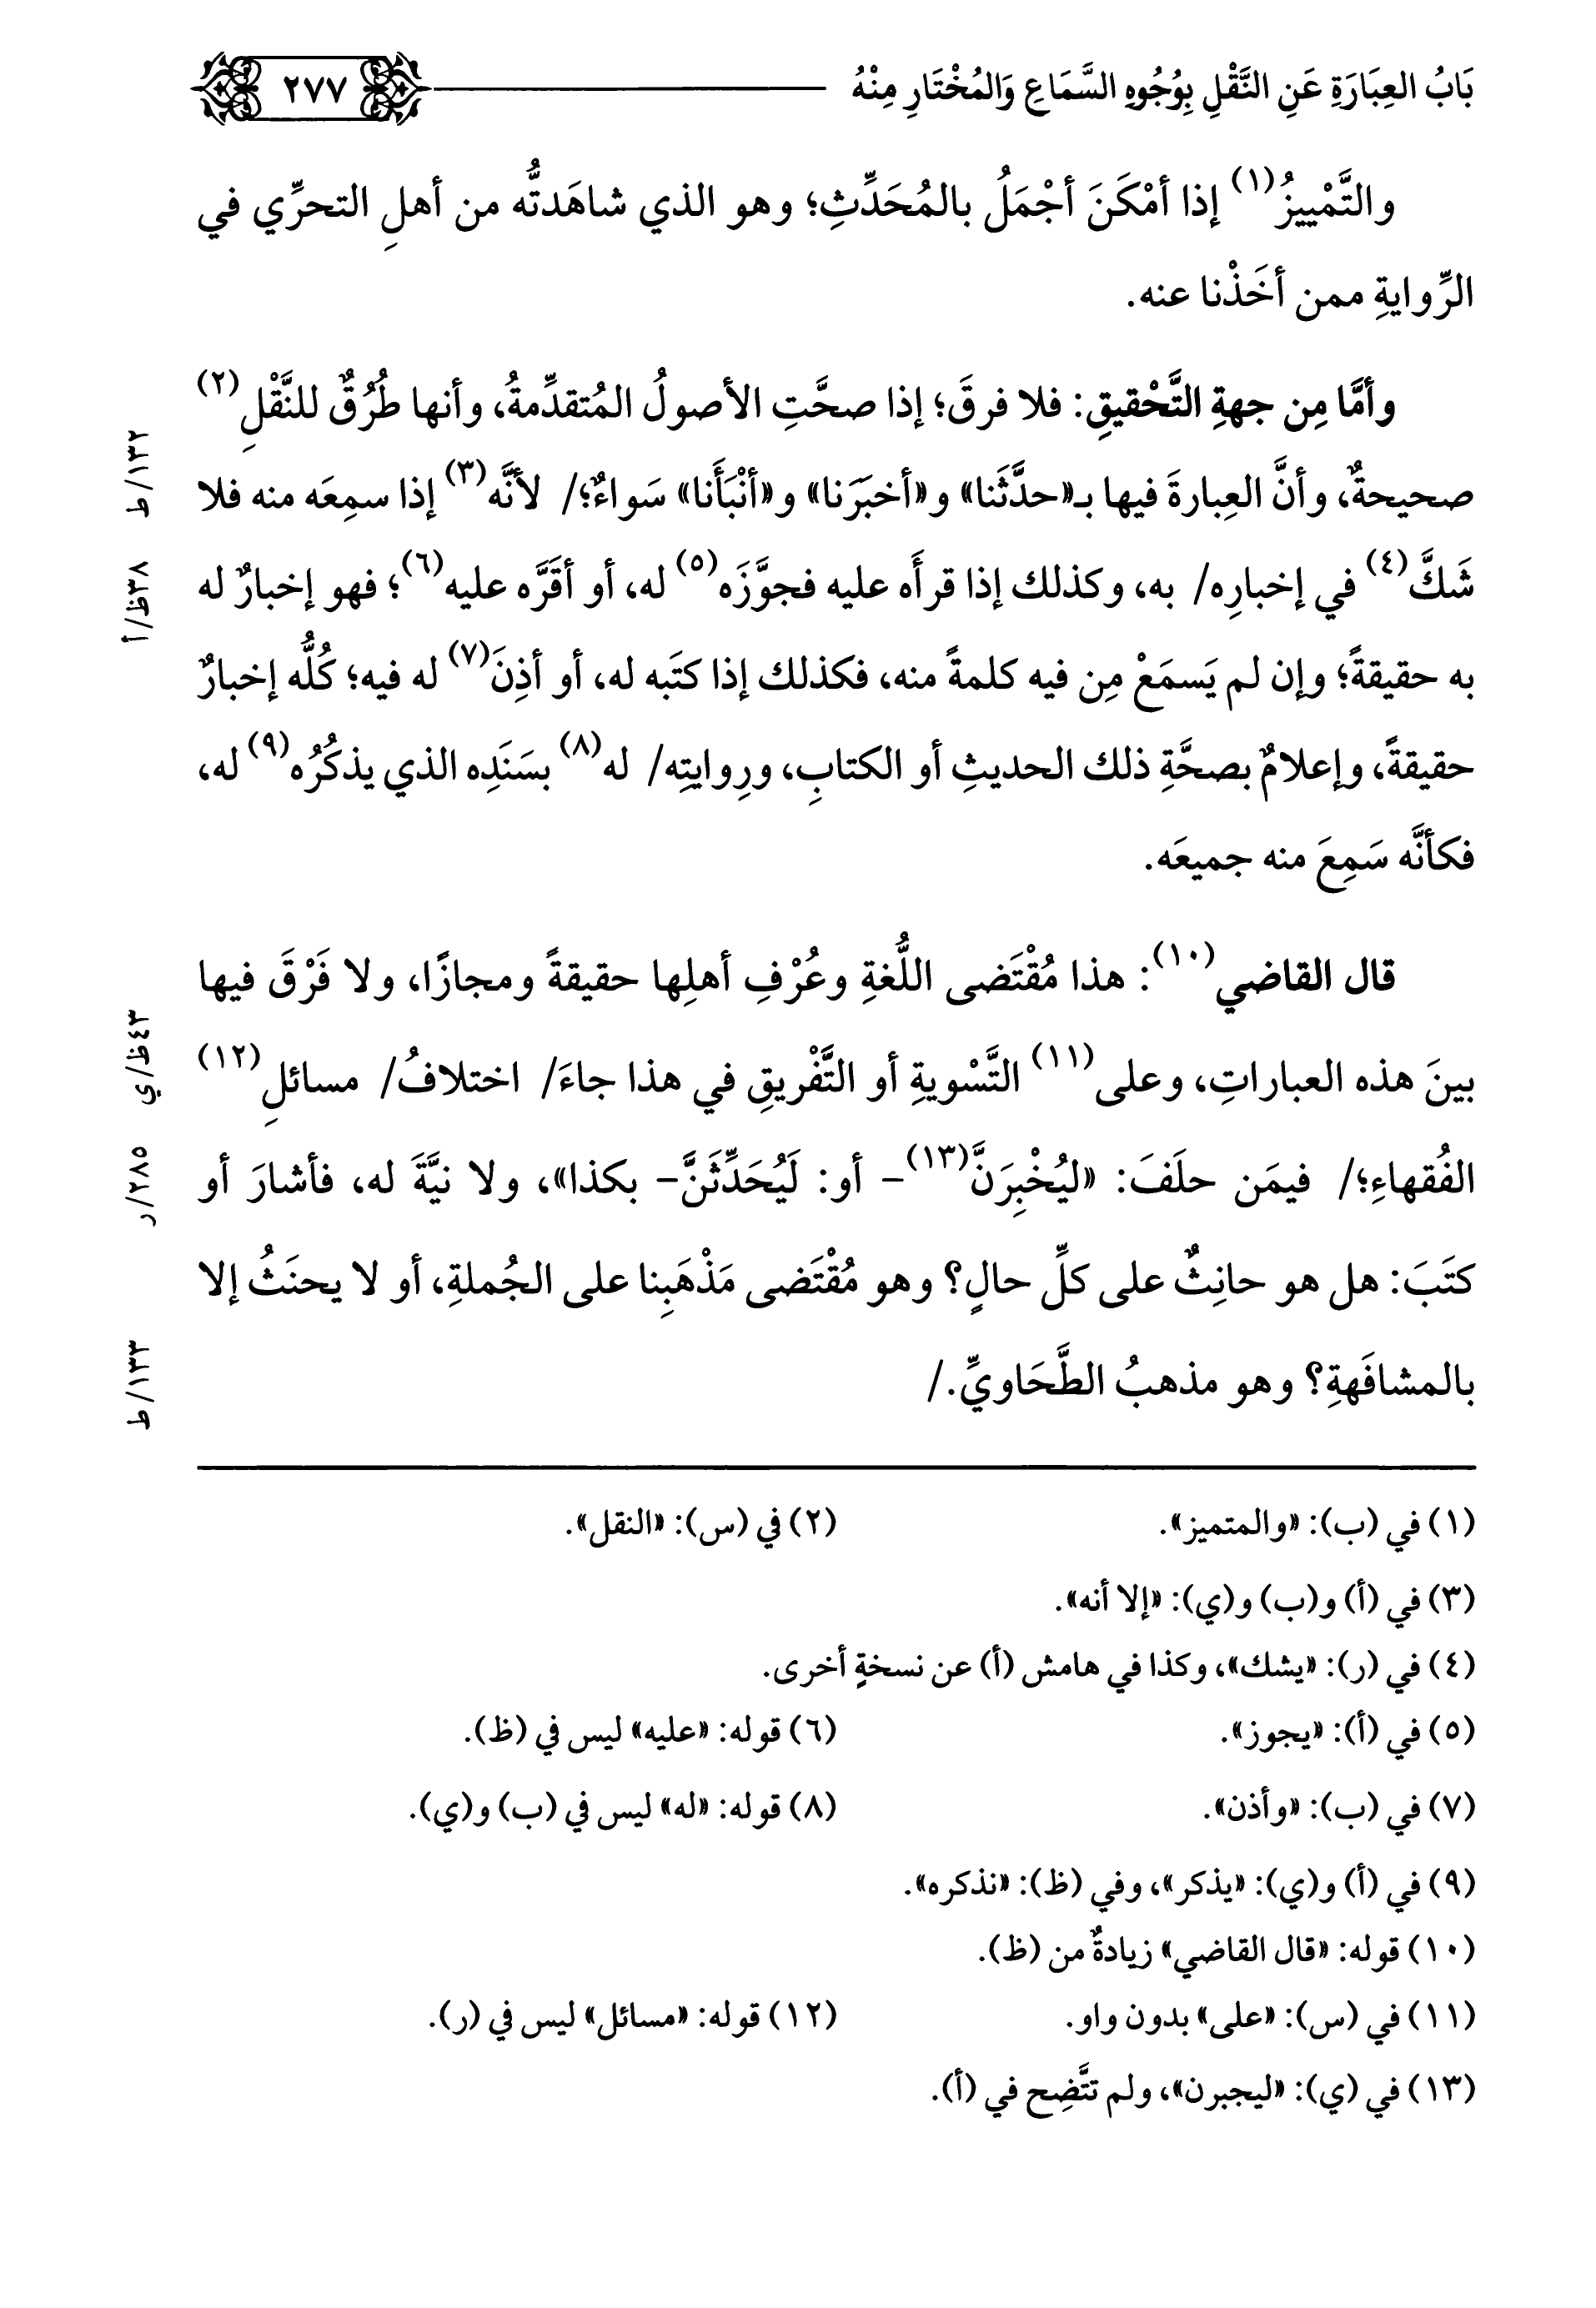 بَابُ العِبَارَةِ عَنِ النَّقْلِ بِوُجُوهِ السَّمَاعِ وَالمُخْتَارِ مِنْهُ ٢٧٧
والتَّمْييزُ(١) إذا أمْكَنَ أجْمَلُ بالمُحَدِّثِ؛ وهو الذي شاهَدتُّه من أهلِ التحرِّي في
الرِّوايةِ ممن أخَذْنا عنه.
وأمَّا مِن جهةِ التَّحْقيقِ: فلا فرقَ؛ إذا صحَّتِ الأصولُ المُتقدِّمةُ، وأنها طُرُقٌ للنَّقْلِ(٢)
صحيحةٌ، وأنَّ العِبارةَ فيها بـ«حدَّثَنا» و«أخبَرَنا» و«أنْبَأَنا» سَواءٌ؛/ لأنَّه(٣) إذا سمِعَه منه فلا
١٣٢/ ط
شَكَّ(٤) في إخبارِه/ به، وكذلك إذا قرأَه عليه فجوَّزَه(٥) له، أو أقَرَّه عليه(٦)؛ فهو إخبارٌ له
٣٨ظ/أ
به حقيقةً؛ وإن لم يَسمَعْ مِن فيه كلمةً منه، فكذلك إذا كتَبه له، أو أذِنَ(٧) له فيه؛ كُلُّه إخبارٌ
حقيقةً، وإعلامٌ بصحَّةِ ذلك الحديثِ أو الكتابِ، ورِوايتِه/ له(٨) بسَنَدِه الذي يذكُرُه(٩) له،
فكأنَّه سَمِعَ منه جميعَه.
قال القاضي(١٠): هذا مُقْتَضى اللُّغةِ وعُرْفِ أهلِها حقيقةً ومجازًا، ولا فَرْقَ فيها
بينَ هذه العباراتِ، وعلى(١١) التَّسْويةِ أو التَّفْريقِ في هذا جاءَ/ اختلافُ/ مسائلِ(١٢)
٤٣ظ/ي
الفُقهاءِ؛/ فيمَن حلَفَ: «ليُخْبِرَنَّ(١٣)- أو: لَيُحَدِّثَنَّ- بكذا»، ولا نيَّةَ له، فأشارَ أو
٢٨٥/ر
كتَبَ: هل هو حانِثٌ على كلِّ حالٍ؟ وهو مُقْتَضى مَذْهَبِنا على الجُملةِ، أو لا يحنَثُ إلا
بالمشافَهةِ؟ وهو مذهبُ الطَّحَاويِّ./
١٣٣/ ط
(١) في (ب): «والمتميز». (٢) في (س): «النقل».
(٣) في (أ) و(ب) و(ي): «إلا أنه».
(٤) في (ر): «يشك»، وكذا في هامش (أ) عن نسخةٍ أخرى.
(٥) في (أ): «يجوز». (٦) قوله: «عليه» ليس في (ظ).
(٧) في (ب): «وأذن». (٨) قوله: «له» ليس في (ب) و(ي).
(٩) في (أ) و(ي): «يذكر»، وفي (ظ): «نذكره».
(١٠) قوله: «قال القاضي» زيادةٌ من (ظ).
(١١) في (س): «على» بدون واو. (١٢) قوله: «مسائل» ليس في (ر).
(١٣) في (ي): «ليجبرن»، ولم تتَّضِح في (أ).